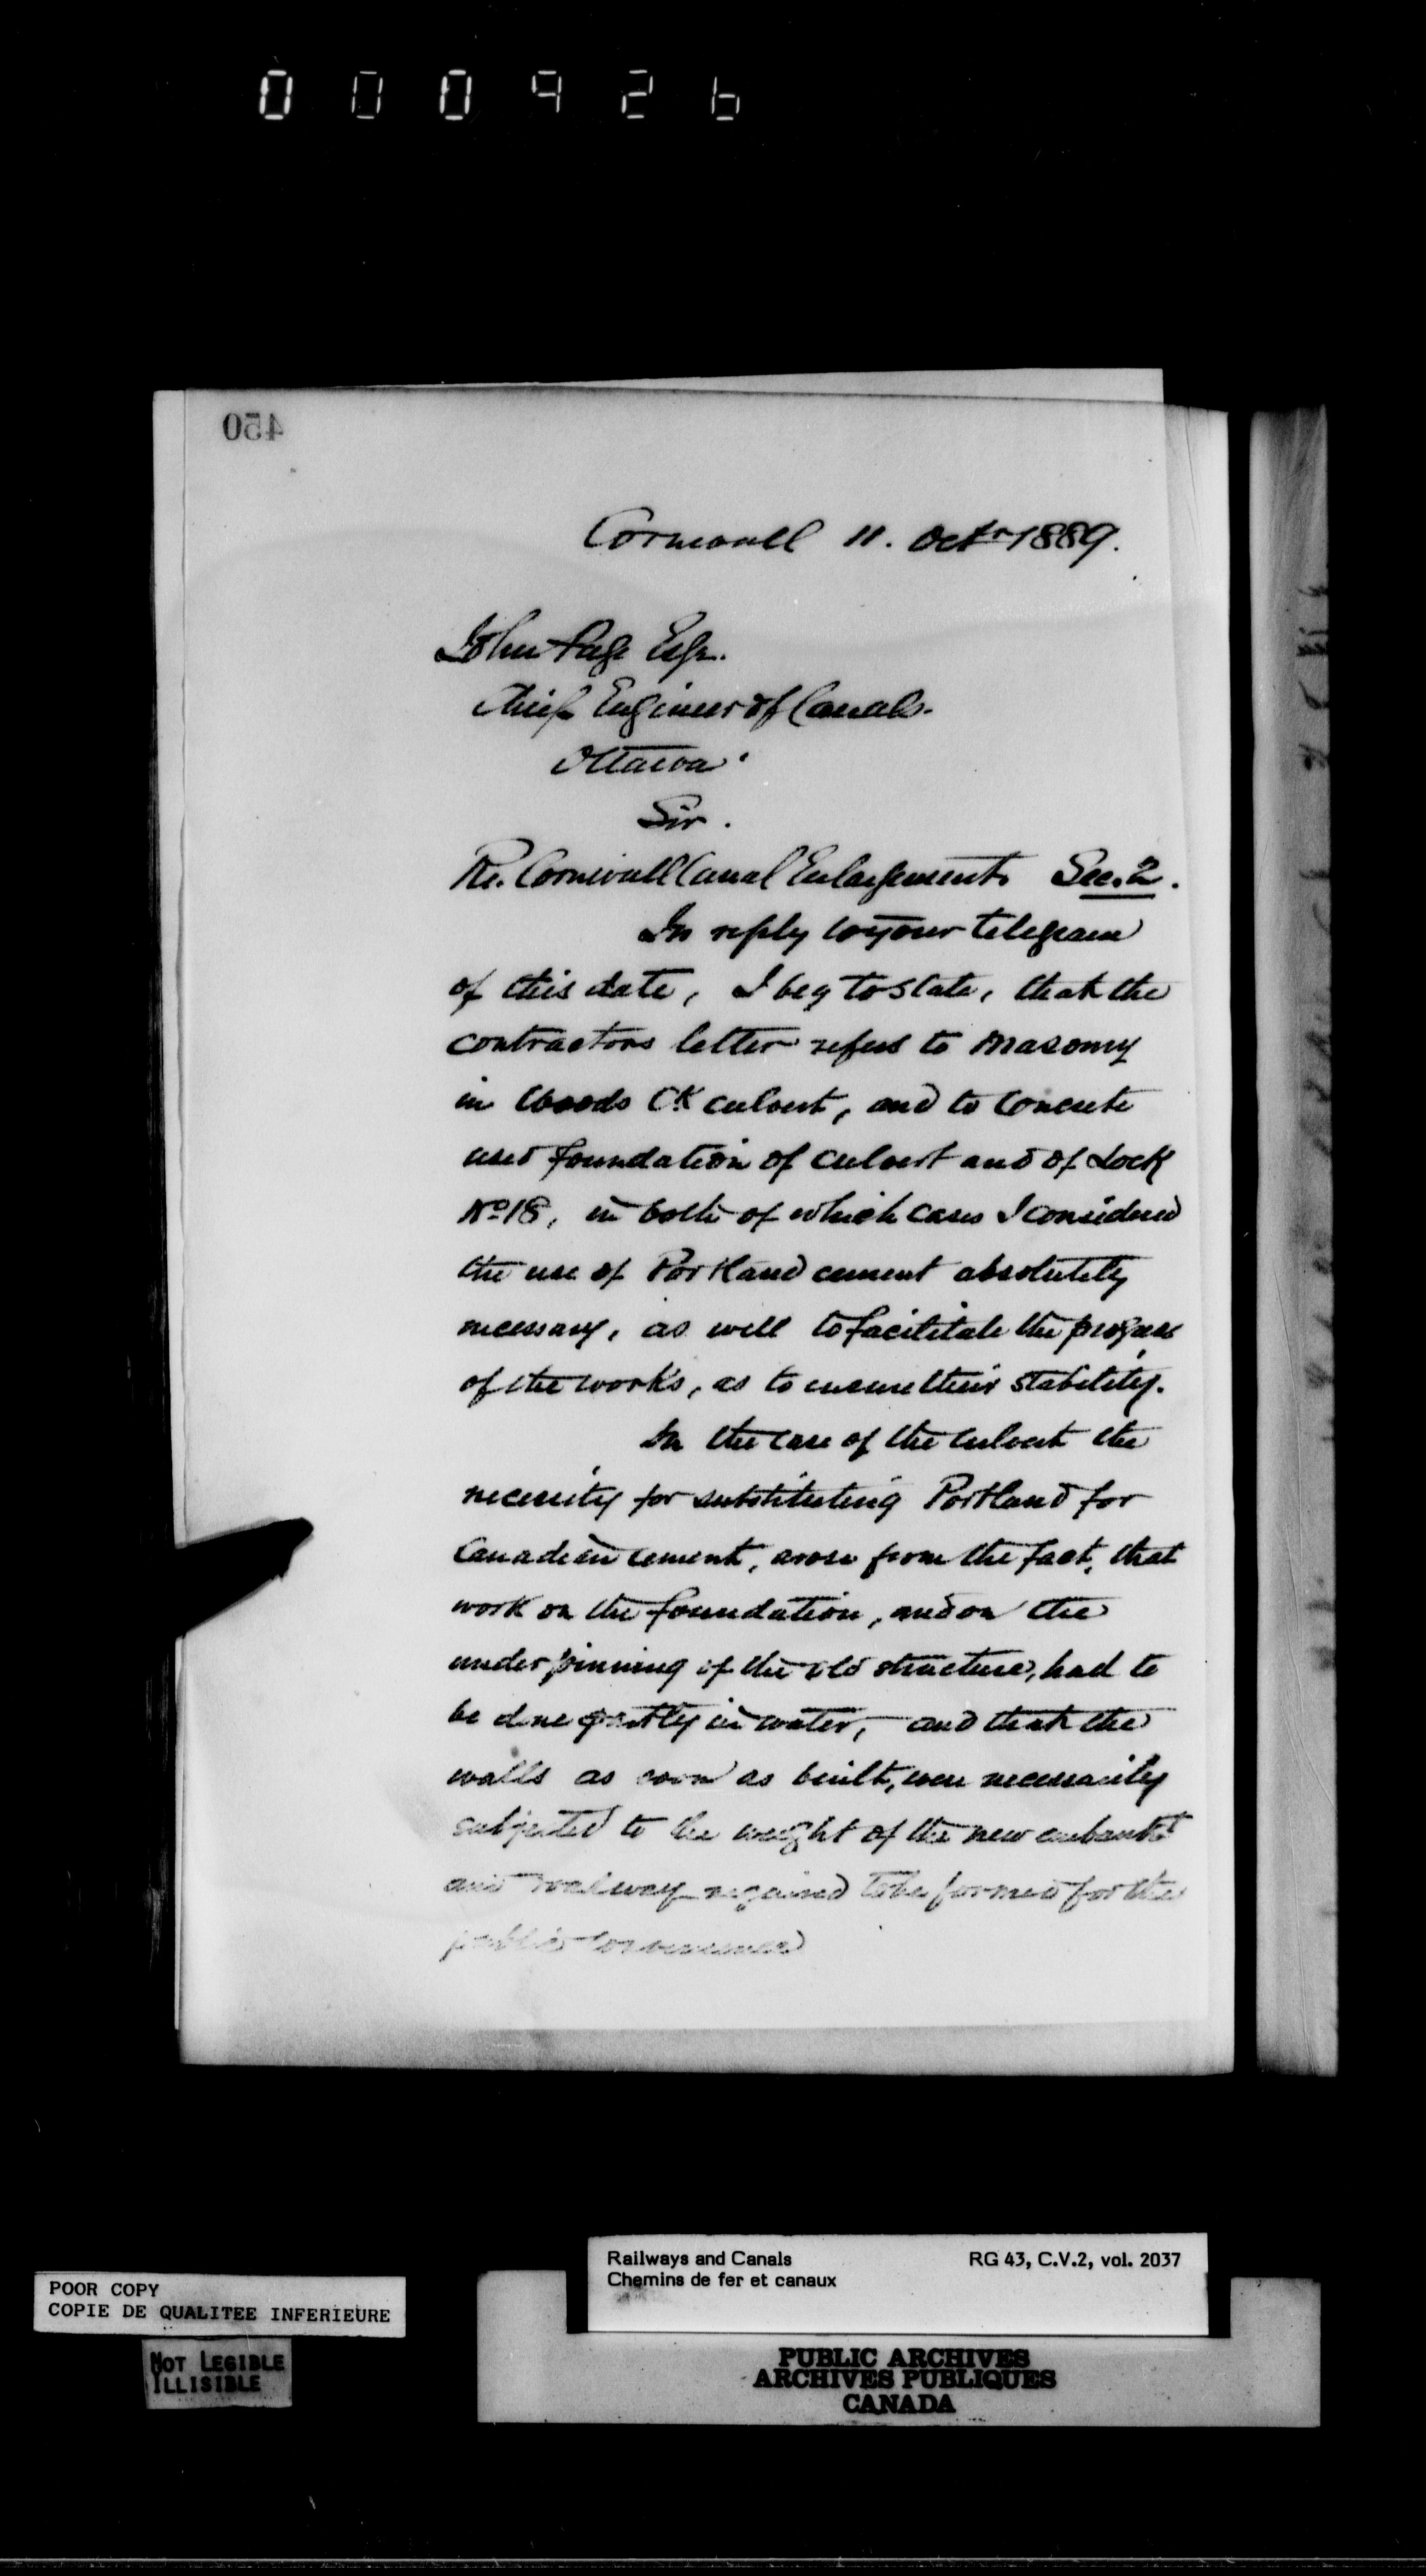 000926
450
Cornwall 11. Octr 1889.
John Page Esqr.
Chief Engineer of Canals.
Ottawa.
Sir.
Re. Cornwall Canal Enlargement. Sec. 2.
In reply to your telegram
of this date, I beg to state, that the
contractors letter refers to masonry
in Woods CK culvert, and to concrete
used foundation of culvert and of Lock
No 18, in both of which cases I considered
the use of Portland cement absolutely
necessary, as well to facilitate the progress
of the works, as to ensure their stability.
In the case of the culvert the
necessity for substituting Portland for
Canadian cement, arose from the fact, that
work on the foundation, and on the
underpinning of the old structure, had to
be done partly in water, and that the
walls as soon as built, were necessarily
subjected to the weight of the new embankt
and roadway required to be formed for the
public convenience
Railways and Canals
Chemins de fer et canaux
RG 43, C.V.2, vol. 2037
POOR COPY
COPIE DE QUALITEE INFERIEURE
NOT LEGIBLE
ILLISIBLE
PUBLIC ARCHIVES
ARCHIVES PUBLIQUES
CANADA